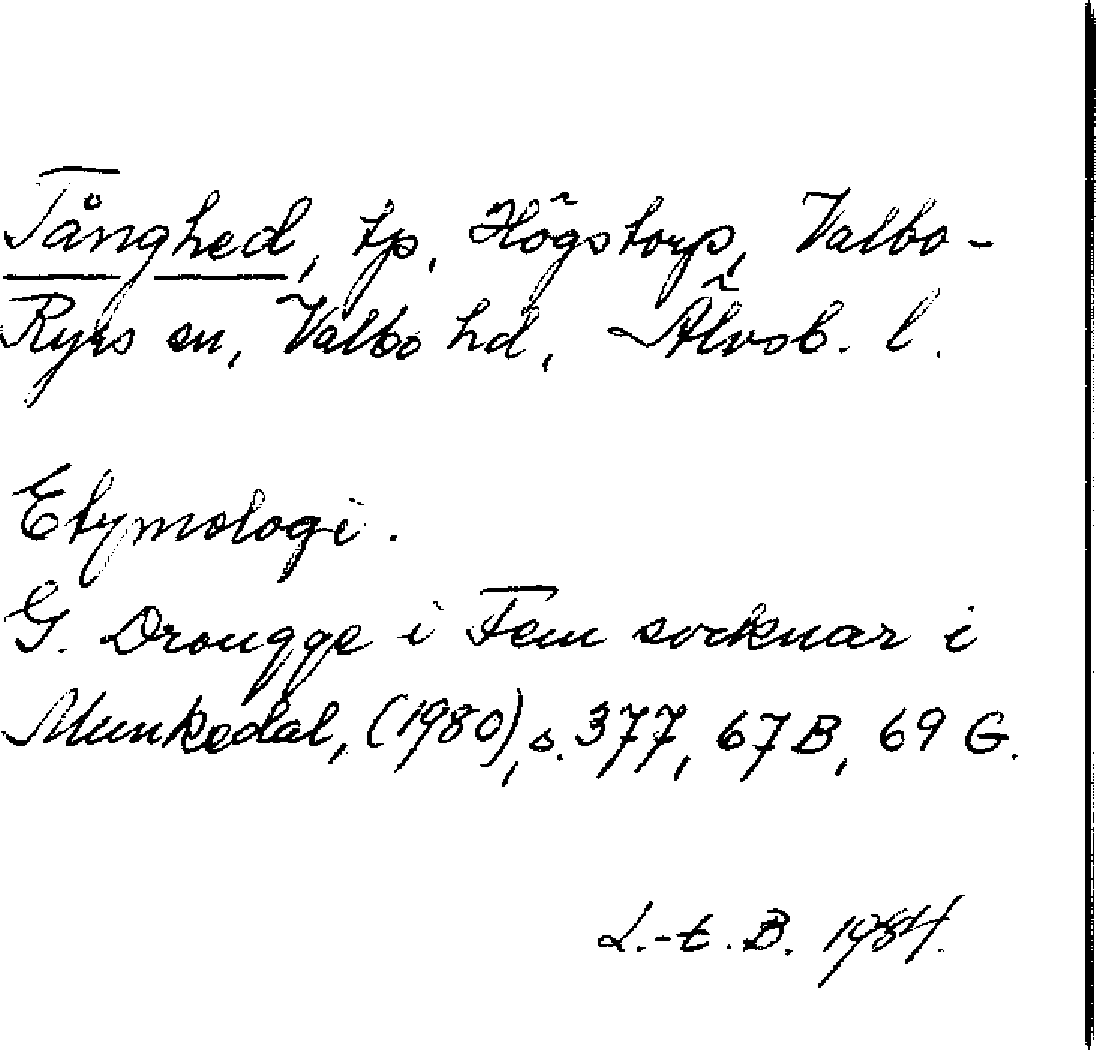 Tånghed, tp, Högstorp, Valbo-
Ryrs sn, Valbo hd, Älvsb. l.
Etymologi.
G. Drougge i Fem socknar i
Munkedal, (1980), s. 377, 67 B, 69 G.
L.-E. B. 1984.